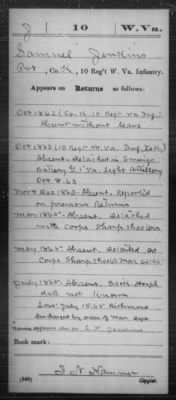 J 10 W.Va.
Samuel Jenkins
Pvt, Co. K, 10 Reg't W. Va. Infantry.
Appears on Returns as follows:
Oct 1862 (Co. K, 10 Regt W. Va. Inf)
Absent without leave
Oct 1863 (10 Regt W. Va. Inf Co K)
Absent, Detached in Ewings
Battery G 1 Va. Light Artillery
Oct 8.63
Nov & Dec 1863. Absent, Reported
on previous Returns
Mar 1865 - Absent, Detached
with Corps Sharpshooters.
May 1865 - Absent, Detailed as
Corps Sharpshooter Mar
July 1865. Absent, Sick Hospl
not known
July 1865 Richmond
by order of War Dept
Name appears also as Jenkins
Book mark:
Copyist.